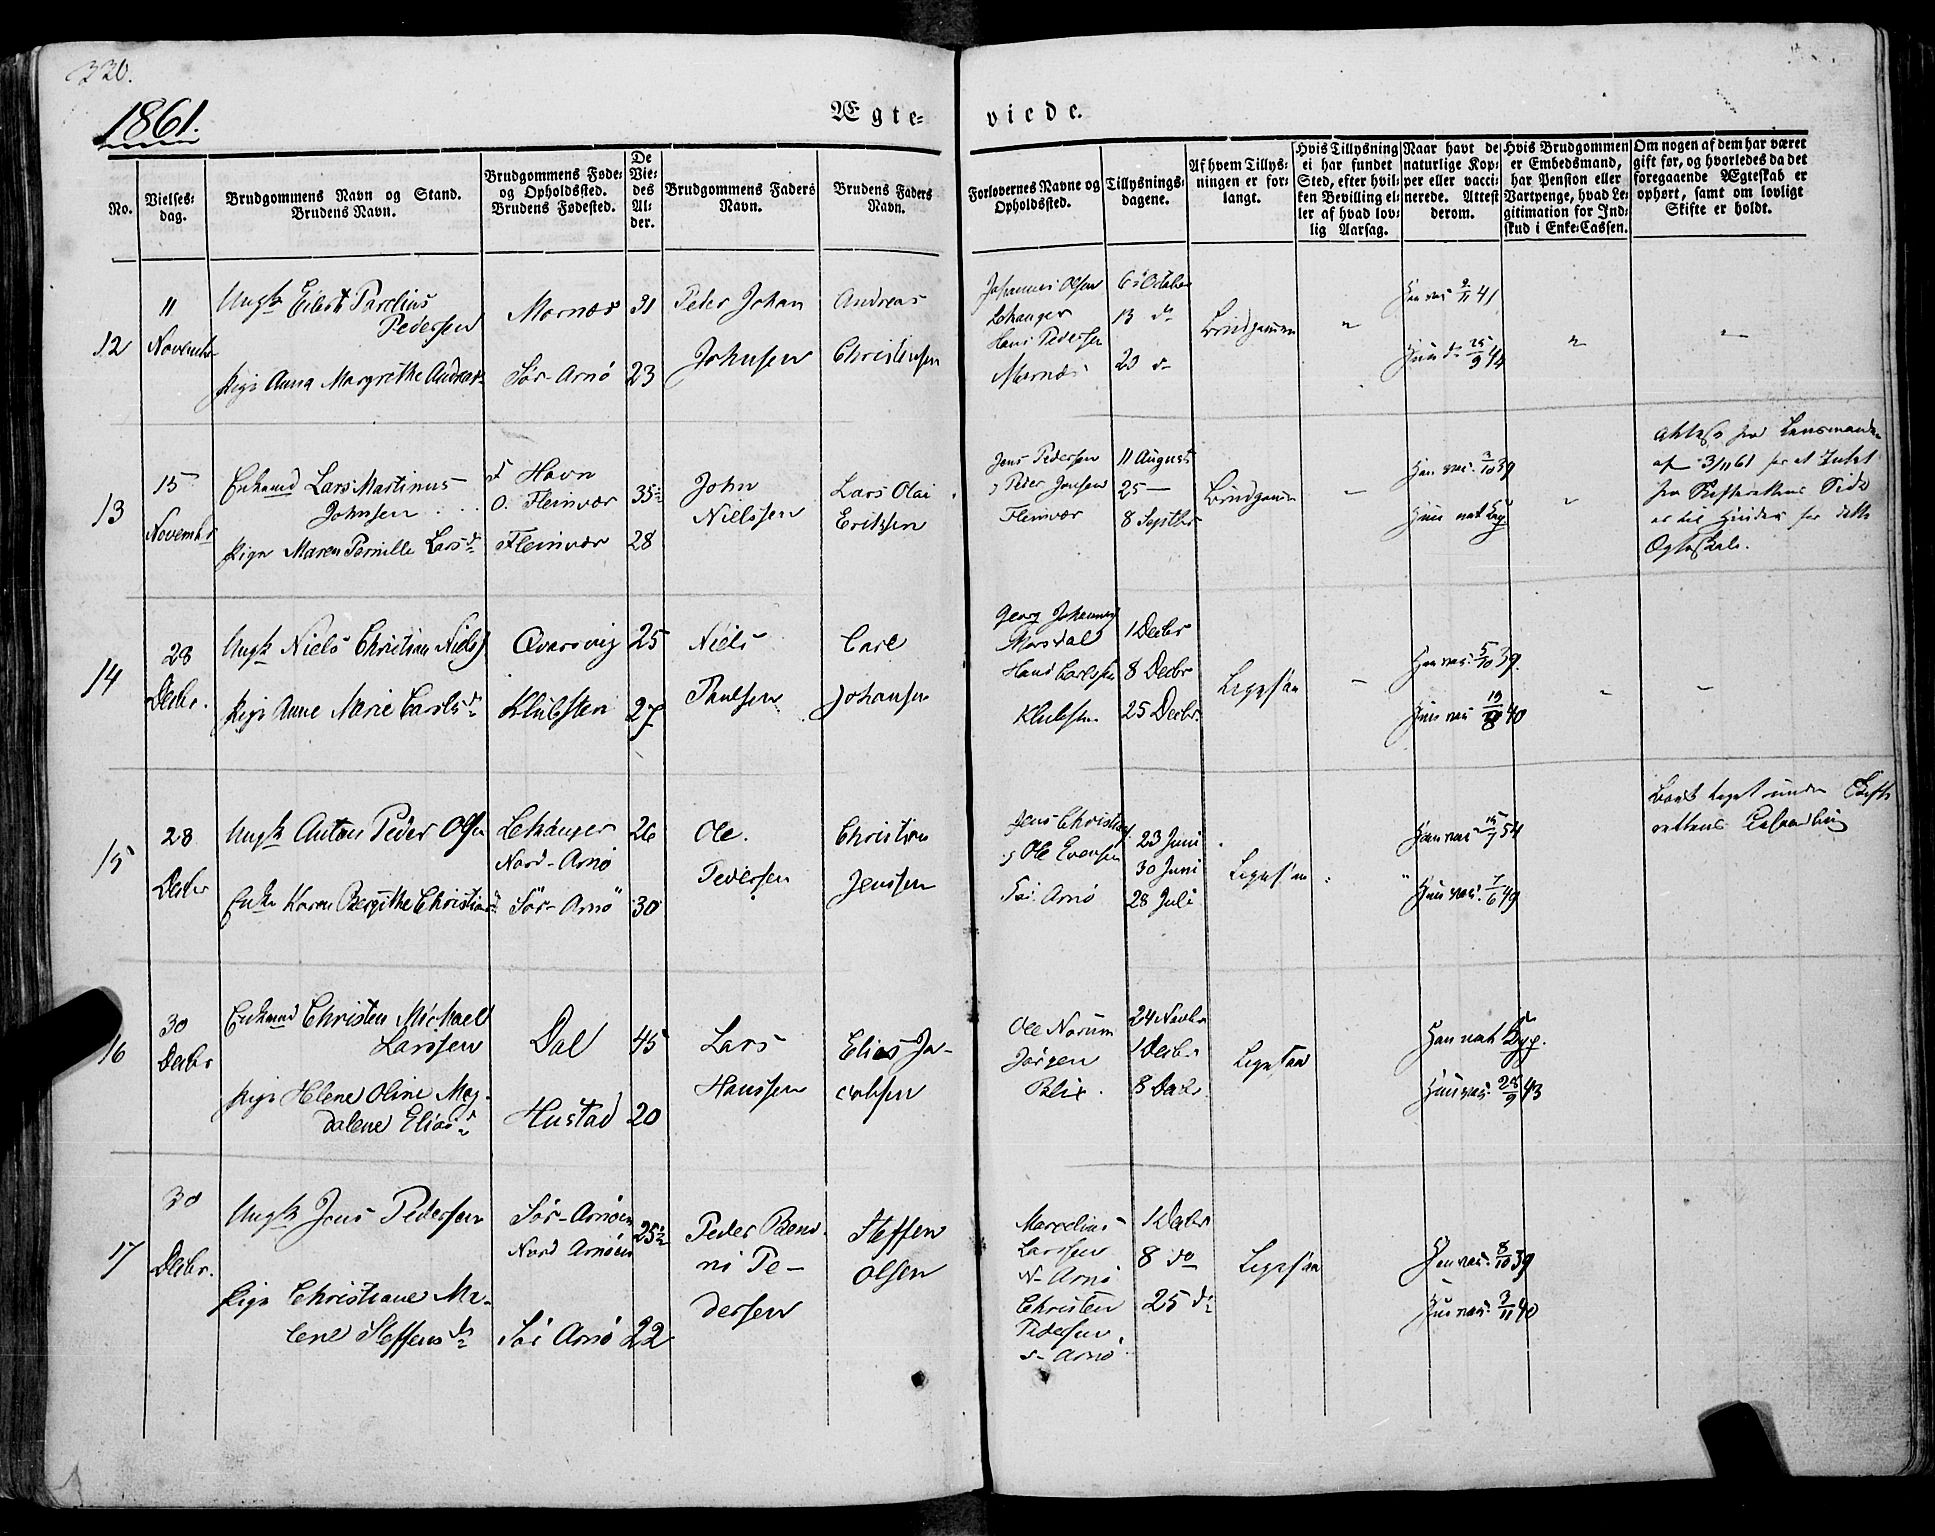 320.
1861.
Ægte-
viede.
No.
Vielses-
dag.
Brudgommens Navn og Stand.
Brudens Navn.
Brudgommens Føde-
og Opholdssted.
Brudens Fødested.
De
Vie-
des
Al-
der.
Brudgommens Faders
Navn.
Brudens Faders
Navn.
Forlovernes Navne og
Opholdssted.
Tillysnings-
dagene.
Af hvem Tillys-
ningen er for-
langt.
Hvis Tillysning
ei har fundet
Sted, efter hvil-
ken Bevilling el-
ler af hvad lov-
lig Aarsag.
Naar havt de
naturlige Kop-
per eller vacci-
nerede. Attest
derom.
Hvis Brudgommen
er Embedsmand,
har Pension eller
Vartpenge, hvad Le-
gitimation for Ind-
skud i Enke-Cassen.
Om nogen af dem har været
gift før, og hvorledes da det
foregaaende Ægteskab er
ophørt, samt om lovligt
Skifte er holdt.
12
11
Novembr
Ungk Eilert Parelius
Pedersen
Pige Anna Margrethe Andreas
Mornæs
Sør-Arnø
31
23
Peter Johan
Johnsen
Andreas
Christensen
Johannes Olsen
Lekanger
Hans Pedersen
Mornæs
6 October
13 do
20 d
Brudgommen
"
Han vac 9/11 41
Hun d 25/9 44
"
"
13
15
Novembr
Enkemd Lars Martinus
Johnsen
Pige Maren Pernille Larsd
f Havn
O. Fleinvær
Fleinvær
35
28
John
Nielssen
Lars Olai
Eritzsen
Jens Pedersen
Peter Jensen
Fleinvær
11 August
25 —
8 Septbr
Brudgommen
"
Han vac. 3/10 39
Hun nat Kop
"
Attest fra Lensmanden
af 3/11 61 for at Intet
fra Skifterettens Side
er til Hinder for dette
Ægteskab.
14
28
Decbr.
Ungk Niels Christian Niels
Pige Anne Marie Carlsd
Qvarsvig
Klubsten
25
27
Niels
Paulsen
Carl
Johansen
Georg Johannes
Morsdal
Hans Carlssen
Klubsten
1 Decbr
8 Decbr
25 Decbr
Ligesaa
"
Han vac. 5/10 39
Hun vac 19/8 40
"
"
15
28
Decbr
Ungk Anton Peder Olsen
Enke Karen Bergithe Christians
Lekanger
Nord-Arnø
Sør-Arnø
26
30
Ole
Pedersen
Christian
Jenssen
Jens Christian
Ole Evensen
Arnø
23 Juni
30 Juni
28 Juli
Ligesaa
"
Han vac 15/7 54
Hun vac. 7/6 49
Boet taget under Skifte
rettens Behandling
16
30
Decbr
Enkemd Christen Michael
Larssen
Pige Helene Oline Mag-
dalene Eliasd
Dal
Hustad
45
20
Lars
Hanssen
Elias Ja-
cobsen
Ole Norum
Jørgen
Blix.
24 Novbr
1 Decbr
8 Decbr
Ligesaa
Han nat Kop.
Hun vac. 28/9 43
17
30
Decbr.
Ungk Jens Pedersen
Pige Christiane Ma-
lene Steffensd
Sør-Arnøen
Nord Arnøen
Sør Arnø
25½
22
Peder Beno-
ni Pe-
dersen
Steffen
Olsen
Marcelius
Larssen
N- Arnø
Christen
Pedersen
S- Arnø
1 Decbr
8 do
25 d
Ligesaa
Han vac. 8/10 39
Hun vac. 3/11 40